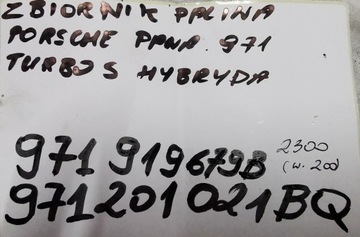 ZBIORNIK PALINA
PORSCHE PANA. 971
TURBO S HYBRYDA
971 919679B 2300
(W. 200)
971201021BQ